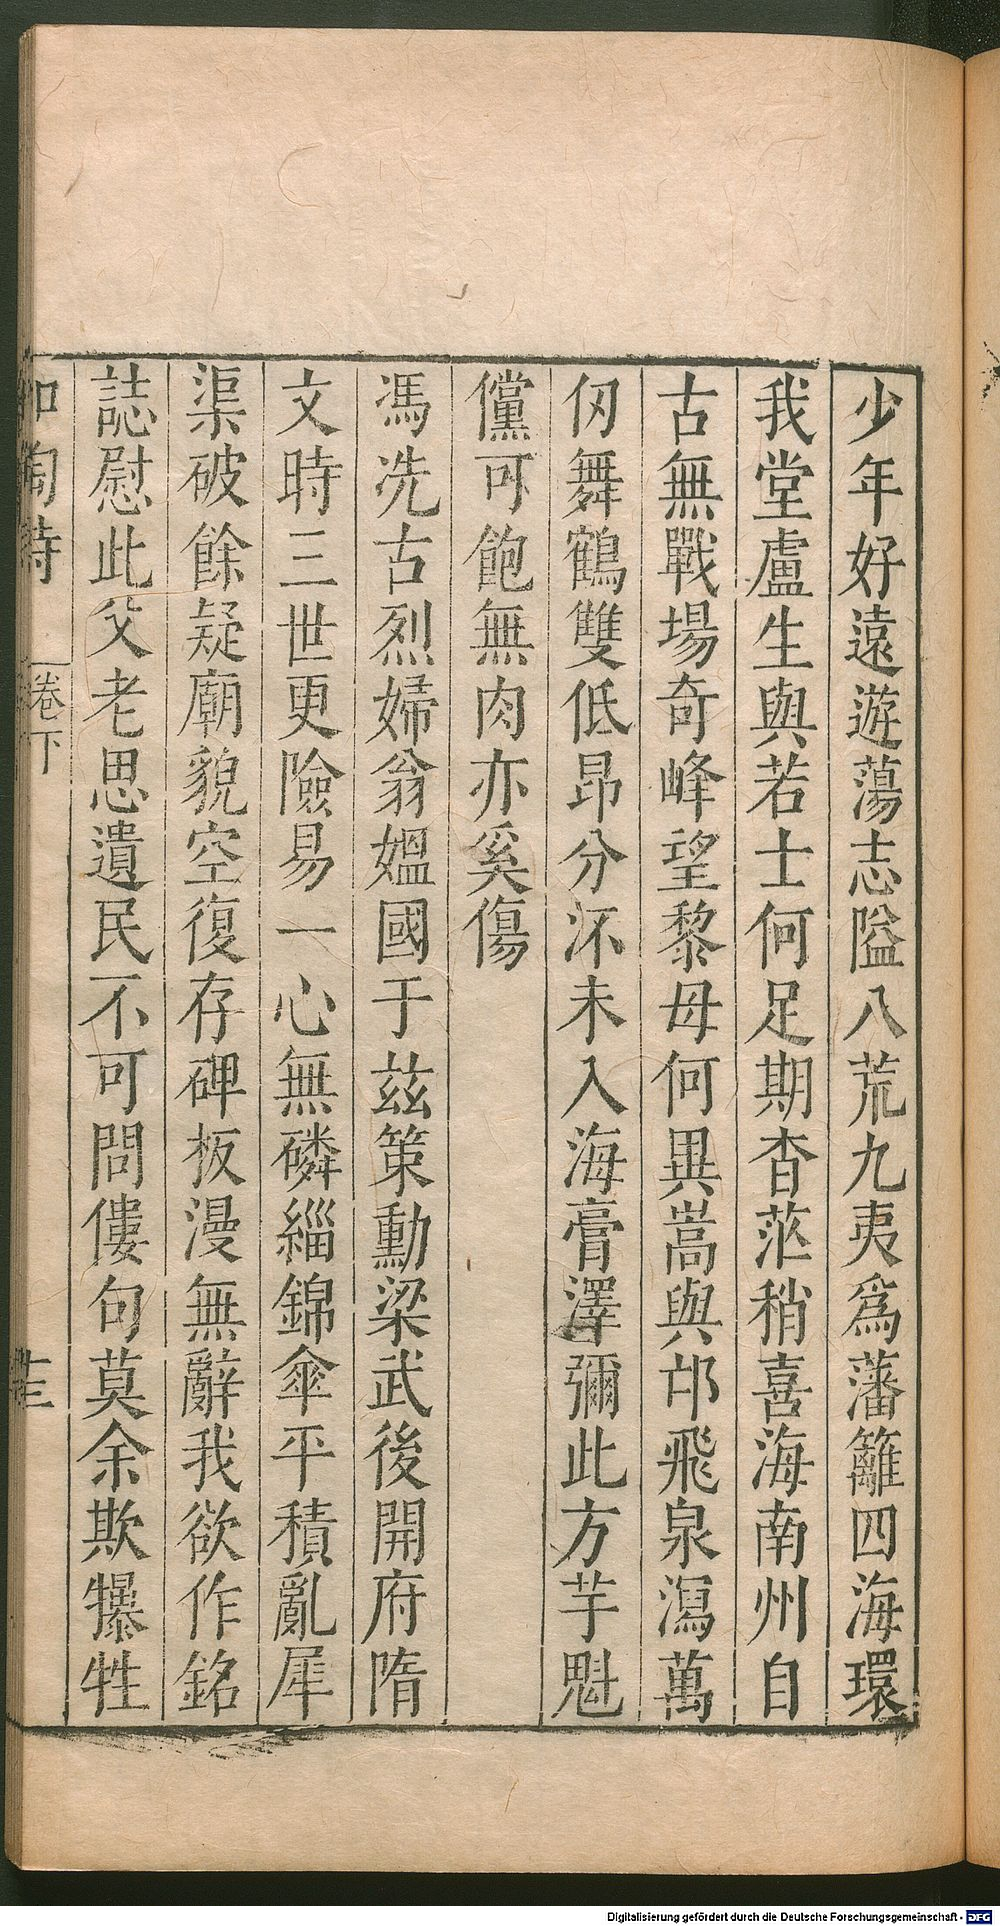 少年好遠遊蕩志隘八荒九夷爲藩籬四海環
我堂盧生與若士何足期杳茫稍喜海南州自
古無戰場奇峰望黎母何異嵩與邙飛泉瀉萬
仞舞鶴雙低昂分㳅未入海膏澤彌此方芋魁
儻可飽無肉亦奚傷
馮冼古烈婦翁媪國于茲策勳梁武後開府隋
文時三世更險易一心無磷緇錦傘平積亂犀
渠破餘疑廟貌空復存碑板漫無辭我欲作銘
誌慰此父老思遺民不可問僂句莫余欺犦牲
和陶詩 卷下
Digitalisierung gefördert durch die Deutsche Forschungsgemeinschaft - DFG